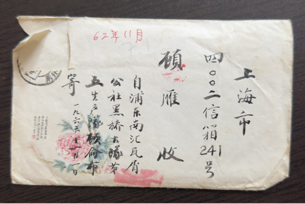 62年11月
上海市
四〇〇二信箱241号
顾雁 收
自浦东南汇瓦屑
公社黑桥大队第
五生产队
寄